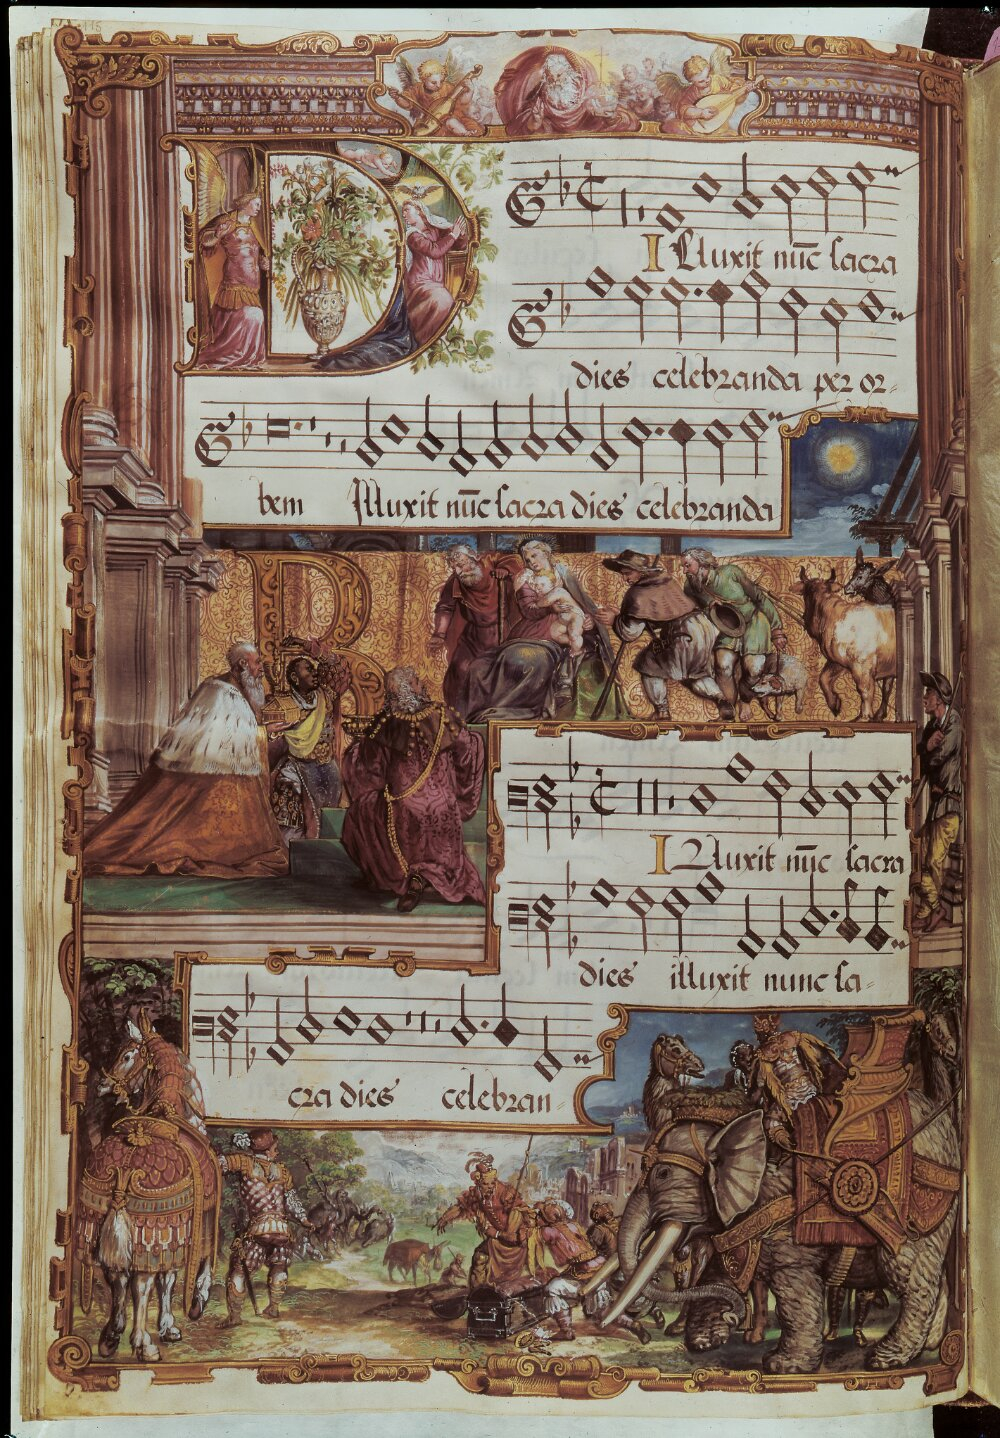 D
Illuxit nūc sacra
dies celebranda per or-
bem Illuxit nūc sacra dies celebranda
B
Illuxit nūc sacra
dies illuxit nunc sa-
cra dies celebran-